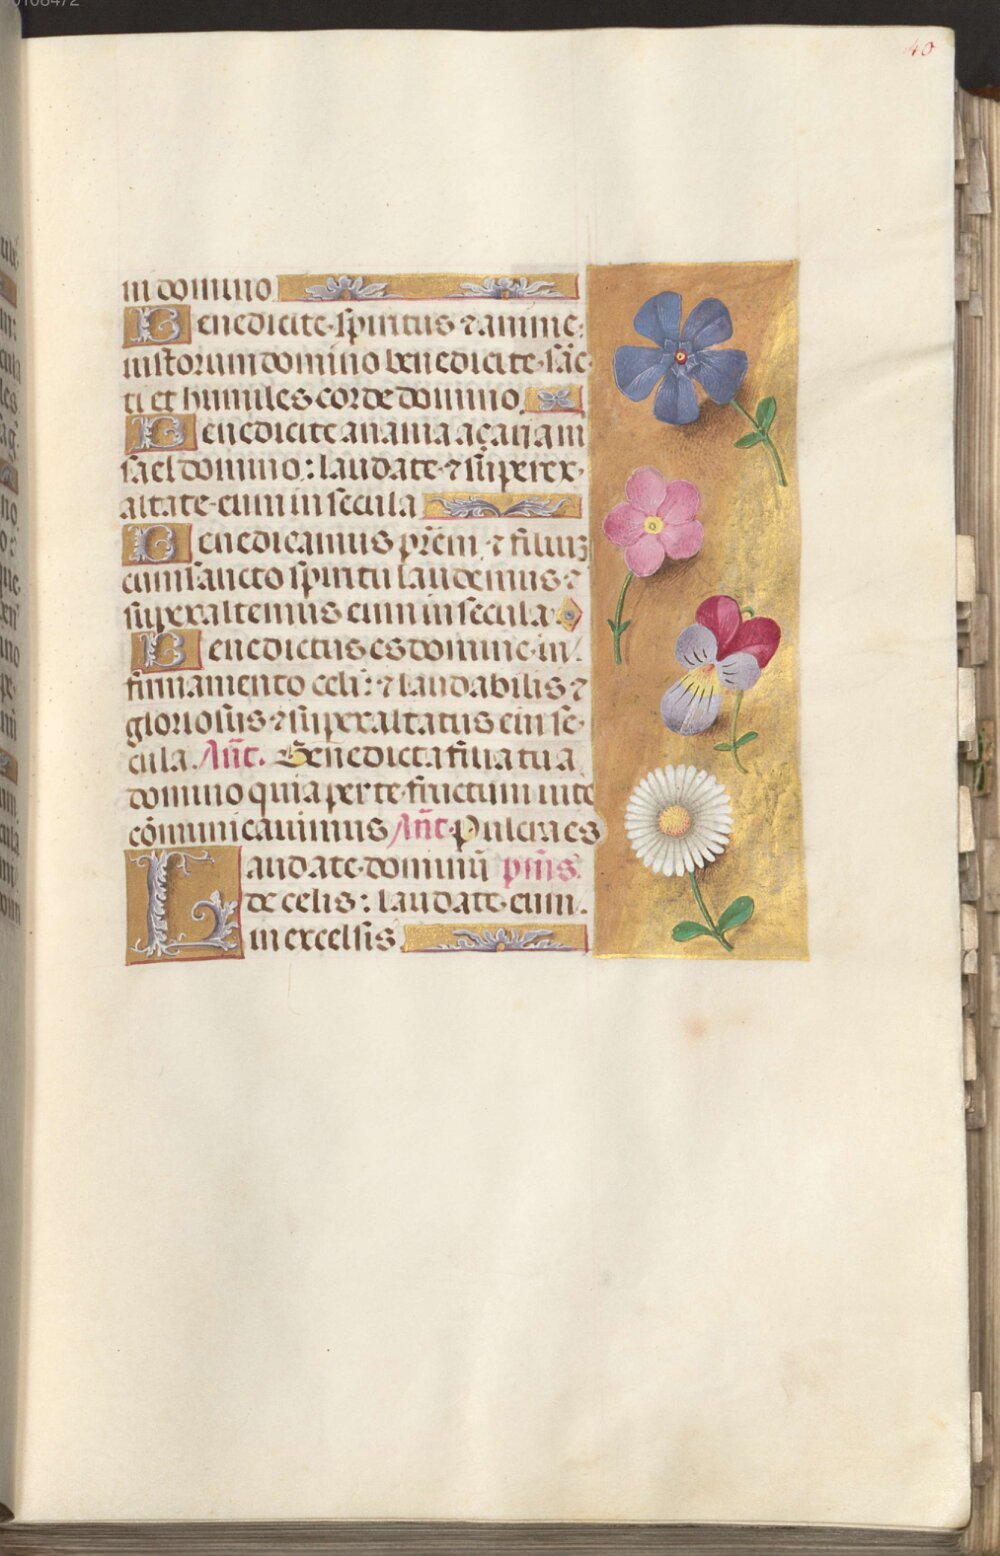 40
in domino
Benedicite spiritus ⁊ anime
iustorum domino benedicite sāc
ti et humiles corde domino
Benedicite anania açaria m
sael domino: laudate ⁊ sup̄erex
altate eum in secula
Benedicamus prēm ⁊ filiuȝ
cum sancto spiritu laudemus ⁊
superexaltemus eum in secula
Benedictus es domine in
firmamento celi: ⁊ laudabilis ⁊
gloriosus ⁊ superexaltatus ein se
cula. Añt. Benedicta filia tua
domino quia per te fructum uite
cōmunicauimus Añt. Pulcra es
Laudate dominū pm̄s
de celis: laudate eum
in excelsis